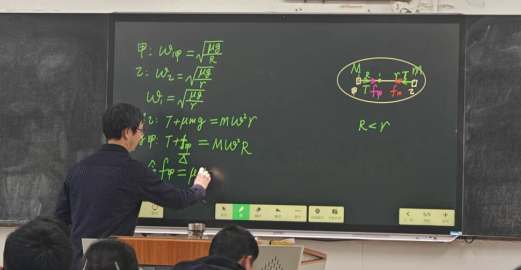 甲: ω₁甲 = √(μg/R)
乙: ω₂ = √(μg/r)
ω₁ = √(μg/r)
乙: T+μmg = mω²r
甲: T+f甲 = Mω²R
f甲 = μ
M R r m
T f甲 f T
甲 乙
R < r